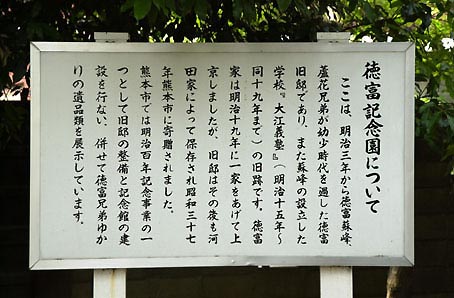 徳富記念園について
ここは、明治三年から徳富蘇峰、
蘆花兄弟が幼少時代を過した徳富
旧邸であり、また蘇峰の設立した
学校『大江義塾』(明治十五年~
同十九年まで)の旧跡です。徳富
家は明治十九年に一家をあげて上
京しましたが、旧邸はその後も河
田家によって保存され昭和三十七
年熊本市に寄贈されました。
熊本市では明治百年記念事業の一
つとして旧邸の整備と記念館の建
設を行ない、併せて徳富兄弟ゆか
りの遺品類を展示しています。